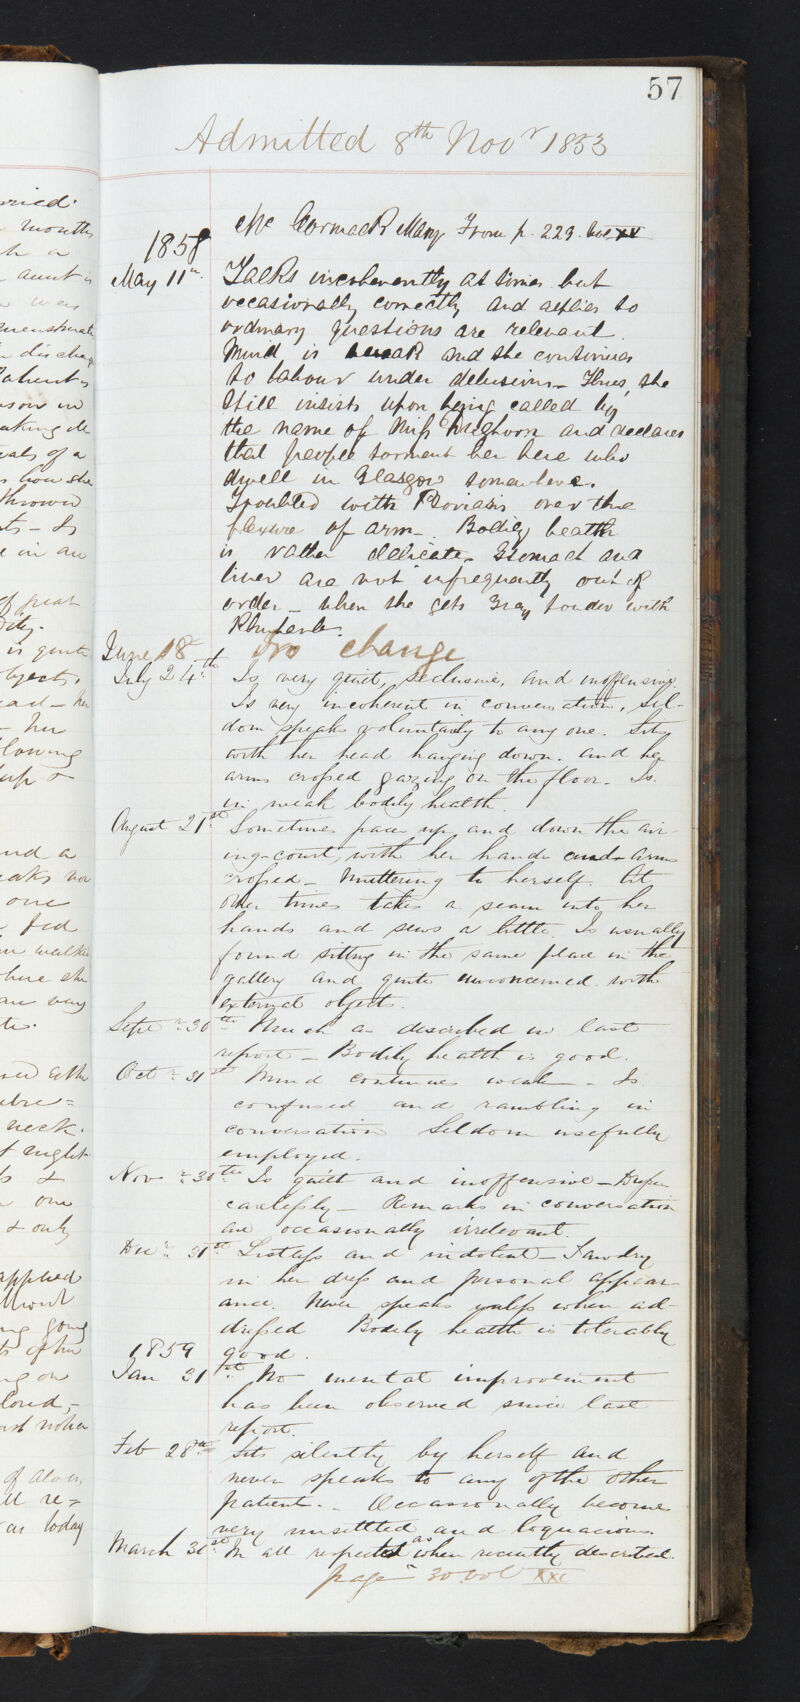 57
Admitted 8th Novr 1853
Mc Cormack Mary From p. 229. vol XX
1858
May 11th. Talks incoherently at times but
occasionally correctly and replies to
ordinary questions are relevant.
Mind is weak and she continues
to labour under delusions - Thus, she
still insists upon being called by
the name of Miss and declares
that people torment her here who
dwell in Glasgow somewhere.
Troubled with Psoriasis over the
flexure of arm - Bodily health
is rather delicate. Stomach and
liver are not infrequently out of
order - when she gets Gray powder with
Rhubarb.
June 18 No change
July 24th. Is very quiet, seclusive, and inoffensive.
Is very incoherent in conversation, Sel-
dom speaks voluntarily to any one. Sits
with her head hanging down. and her
arms crossed gazing on the floor. Is
in weak bodily health.
August 21st. Sometimes paces up and down the air-
ing-court, with her hands and arms
crossed - Muttering to herself. At
other times takes a seam into her
hands and sews a little. Is usually
found sitting in the same place in the
gallery and quite unconcerned with
external objects.
Septr 30th Much as described in last
report - Bodily health is good.
Octr 31st Mind continues weak - Is
confused and rambling in
conversation Seldom usefully
employed.
Novr 30th. Is quiet and inoffensive - Dresses
carelessly - Remarks in conversation
are occasionally irrelevant.
Decr 31st Listless and indolent - Tawdry
in her dress and personal appear-
ance. Never speaks unless when ad-
dressed Bodily health is tolerably
good.
1859
Jan 31st. No mental improvement
has been observed since last
report.
Feb 28th. Sits silently by herself and
never speaks to any of the other
patients. - Occasionally becomes
very unsettled and loquacious.
March 31st. In all respects as when recently described.
page 30 vol XXI